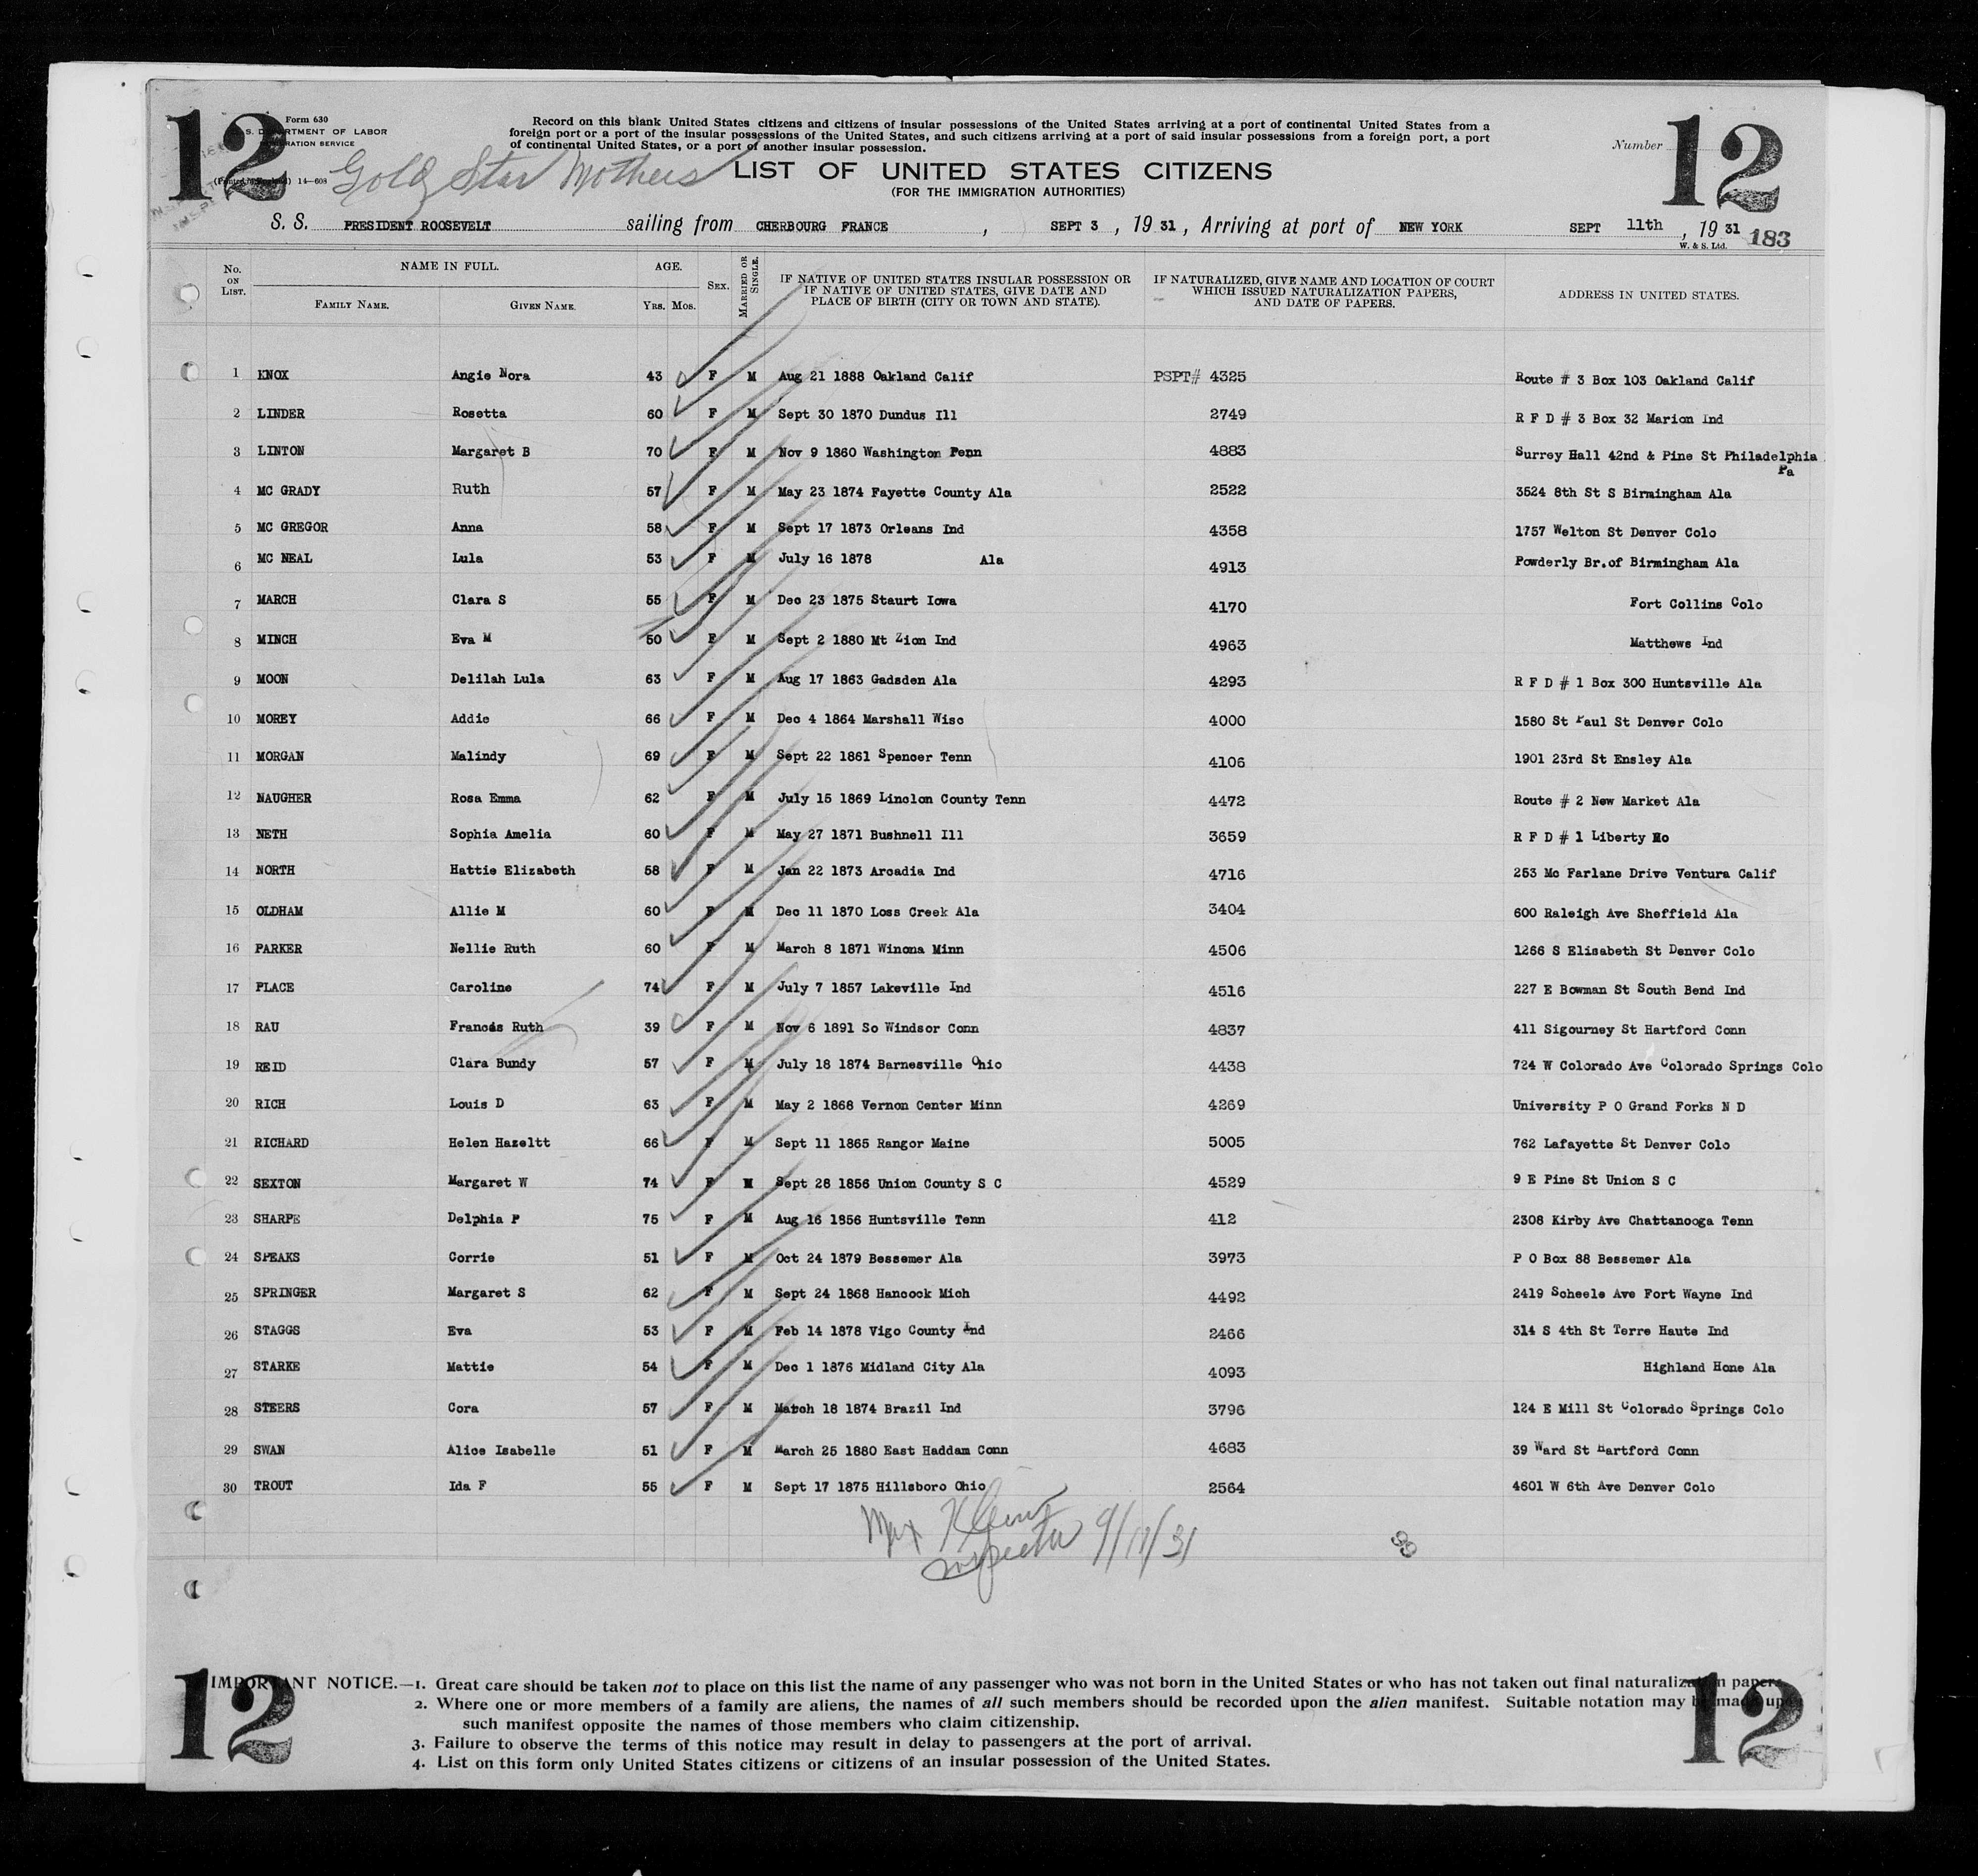 12
12
Form 630
DEPARTMENT OF LABOR
Record on this blank United States citizens and citizens of insular possessions of the United States arriving at a port of continental United States from a
foreign port or a port of the insular possessions of the United States, and such citizens arriving at a port of said insular possessions from a foreign port, a port
of continental United States, or a port of another insular possession.
Number
14—608
Gold Star Mothers
LIST OF UNITED STATES CITIZENS
(FOR THE IMMIGRATION AUTHORITIES)
S. S. PRESIDENT ROOSEVELT sailing from CHERBOURG FRANCE , SEPT 3 , 19 31 , Arriving at port of NEW YORK SEPT 11th , 19 31
W. & S. Ltd. 183
No. ON LIST. NAME IN FULL. AGE. SEX. MARRIED OR SINGLE. IF NATIVE OF UNITED STATES INSULAR POSSESSION OR IF NATIVE OF UNITED STATES, GIVE DATE AND PLACE OF BIRTH (CITY OR TOWN AND STATE). IF NATURALIZED, GIVE NAME AND LOCATION OF COURT WHICH ISSUED NATURALIZATION PAPERS, AND DATE OF PAPERS. ADDRESS IN UNITED STATES.
FAMILY NAME. GIVEN NAME. YRS. MOS.
1 KNOX Angie Nora 43 F M Aug 21 1888 Oakland Calif PSPT# 4325 Route # 3 Box 103 Oakland Calif
2 LINDER Rosetta 60 F M Sept 30 1870 Dundus Ill 2749 R F D # 3 Box 32 Marion Ind
3 LINTON Margaret B 70 F M Nov 9 1860 Washington Penn 4883 Surrey Hall 42nd & Pine St Philadelphia Pa
4 MC GRADY Ruth 57 F M May 23 1874 Fayette County Ala 2522 3524 8th St S Birmingham Ala
5 MC GREGOR Anna 58 F M Sept 17 1873 Orleans Ind 4358 1757 Welton St Denver Colo
6 MC NEAL Lula 53 F M July 16 1878 Ala 4913 Powderly Br.of Birmingham Ala
7 MARCH Clara S 55 F M Dec 23 1875 Staurt Iowa 4170 Fort Collins Colo
8 MINCH Eva M 50 F M Sept 2 1880 Mt Zion Ind 4963 Matthews Ind
9 MOON Delilah Lula 63 F M Aug 17 1863 Gadsden Ala 4293 R F D # 1 Box 300 Huntsville Ala
10 MOREY Addie 66 F M Dec 4 1864 Marshall Wisc 4000 1580 St Paul St Denver Colo
11 MORGAN Malindy 69 F M Sept 22 1861 Spencer Tenn 4106 1901 23rd St Ensley Ala
12 NAUGHER Rosa Emma 62 F M July 15 1869 Linclon County Tenn 4472 Route # 2 New Market Ala
13 NETH Sophia Amelia 60 F M May 27 1871 Bushnell Ill 3659 R F D # 1 Liberty Mo
14 NORTH Hattie Elizabeth 58 F M Jan 22 1873 Arcadia Ind 4716 253 Mc Farlane Drive Ventura Calif
15 OLDHAM Allie M 60 F M Dec 11 1870 Loss Creek Ala 3404 600 Raleigh Ave Sheffield Ala
16 PARKER Nellie Ruth 60 F M March 8 1871 Winona Minn 4506 1266 S Elisabeth St Denver Colo
17 PLACE Caroline 74 F M July 7 1857 Lakeville Ind 4516 227 E Bowman St South Bend Ind
18 RAU Frances Ruth 39 F M Nov 6 1891 So Windsor Conn 4837 411 Sigourney St Hartford Conn
19 REID Clara Bundy 57 F M July 18 1874 Barnesville Ohio 4438 724 W Colorado Ave Colorado Springs Colo
20 RICH Louis D 63 F M May 2 1868 Vernon Center Minn 4269 University P O Grand Forks N D
21 RICHARD Helen Hazeltt 66 F M Sept 11 1865 Rangor Maine 5005 762 Lafayette St Denver Colo
22 SEXTON Margaret W 74 F M Sept 28 1856 Union County S C 4529 9 E Pine St Union S C
23 SHARPE Delphia P 75 F M Aug 16 1856 Huntsville Tenn 412 2308 Kirby Ave Chattanooga Tenn
24 SPEAKS Corrie 51 F M Oct 24 1879 Bessemer Ala 3973 P O Box 88 Bessemer Ala
25 SPRINGER Margaret S 62 F M Sept 24 1868 Hancock Mich 4492 2419 Scheele Ave Fort Wayne Ind
26 STAGGS Eva 53 F M Feb 14 1878 Vigo County Ind 2466 314 S 4th St Terre Haute Ind
27 STARKE Mattie 54 F M Dec 1 1876 Midland City Ala 4093 Highland Hone Ala
28 STEERS Cora 57 F M March 18 1874 Brazil Ind 3796 124 E Mill St Colorado Springs Colo
29 SWAN Alice Isabelle 51 F M March 25 1880 East Haddam Conn 4683 39 Ward St Hartford Conn
30 TROUT Ida F 55 F M Sept 17 1875 Hillsboro Ohio 2564 4601 W 6th Ave Denver Colo
Max Klein
Inspector 9/11/31
IMPORTANT NOTICE.—1. Great care should be taken not to place on this list the name of any passenger who was not born in the United States or who has not taken out final naturalization papers.
2. Where one or more members of a family are aliens, the names of all such members should be recorded upon the alien manifest. Suitable notation may be made upon
such manifest opposite the names of those members who claim citizenship.
3. Failure to observe the terms of this notice may result in delay to passengers at the port of arrival.
4. List on this form only United States citizens or citizens of an insular possession of the United States.
12
12